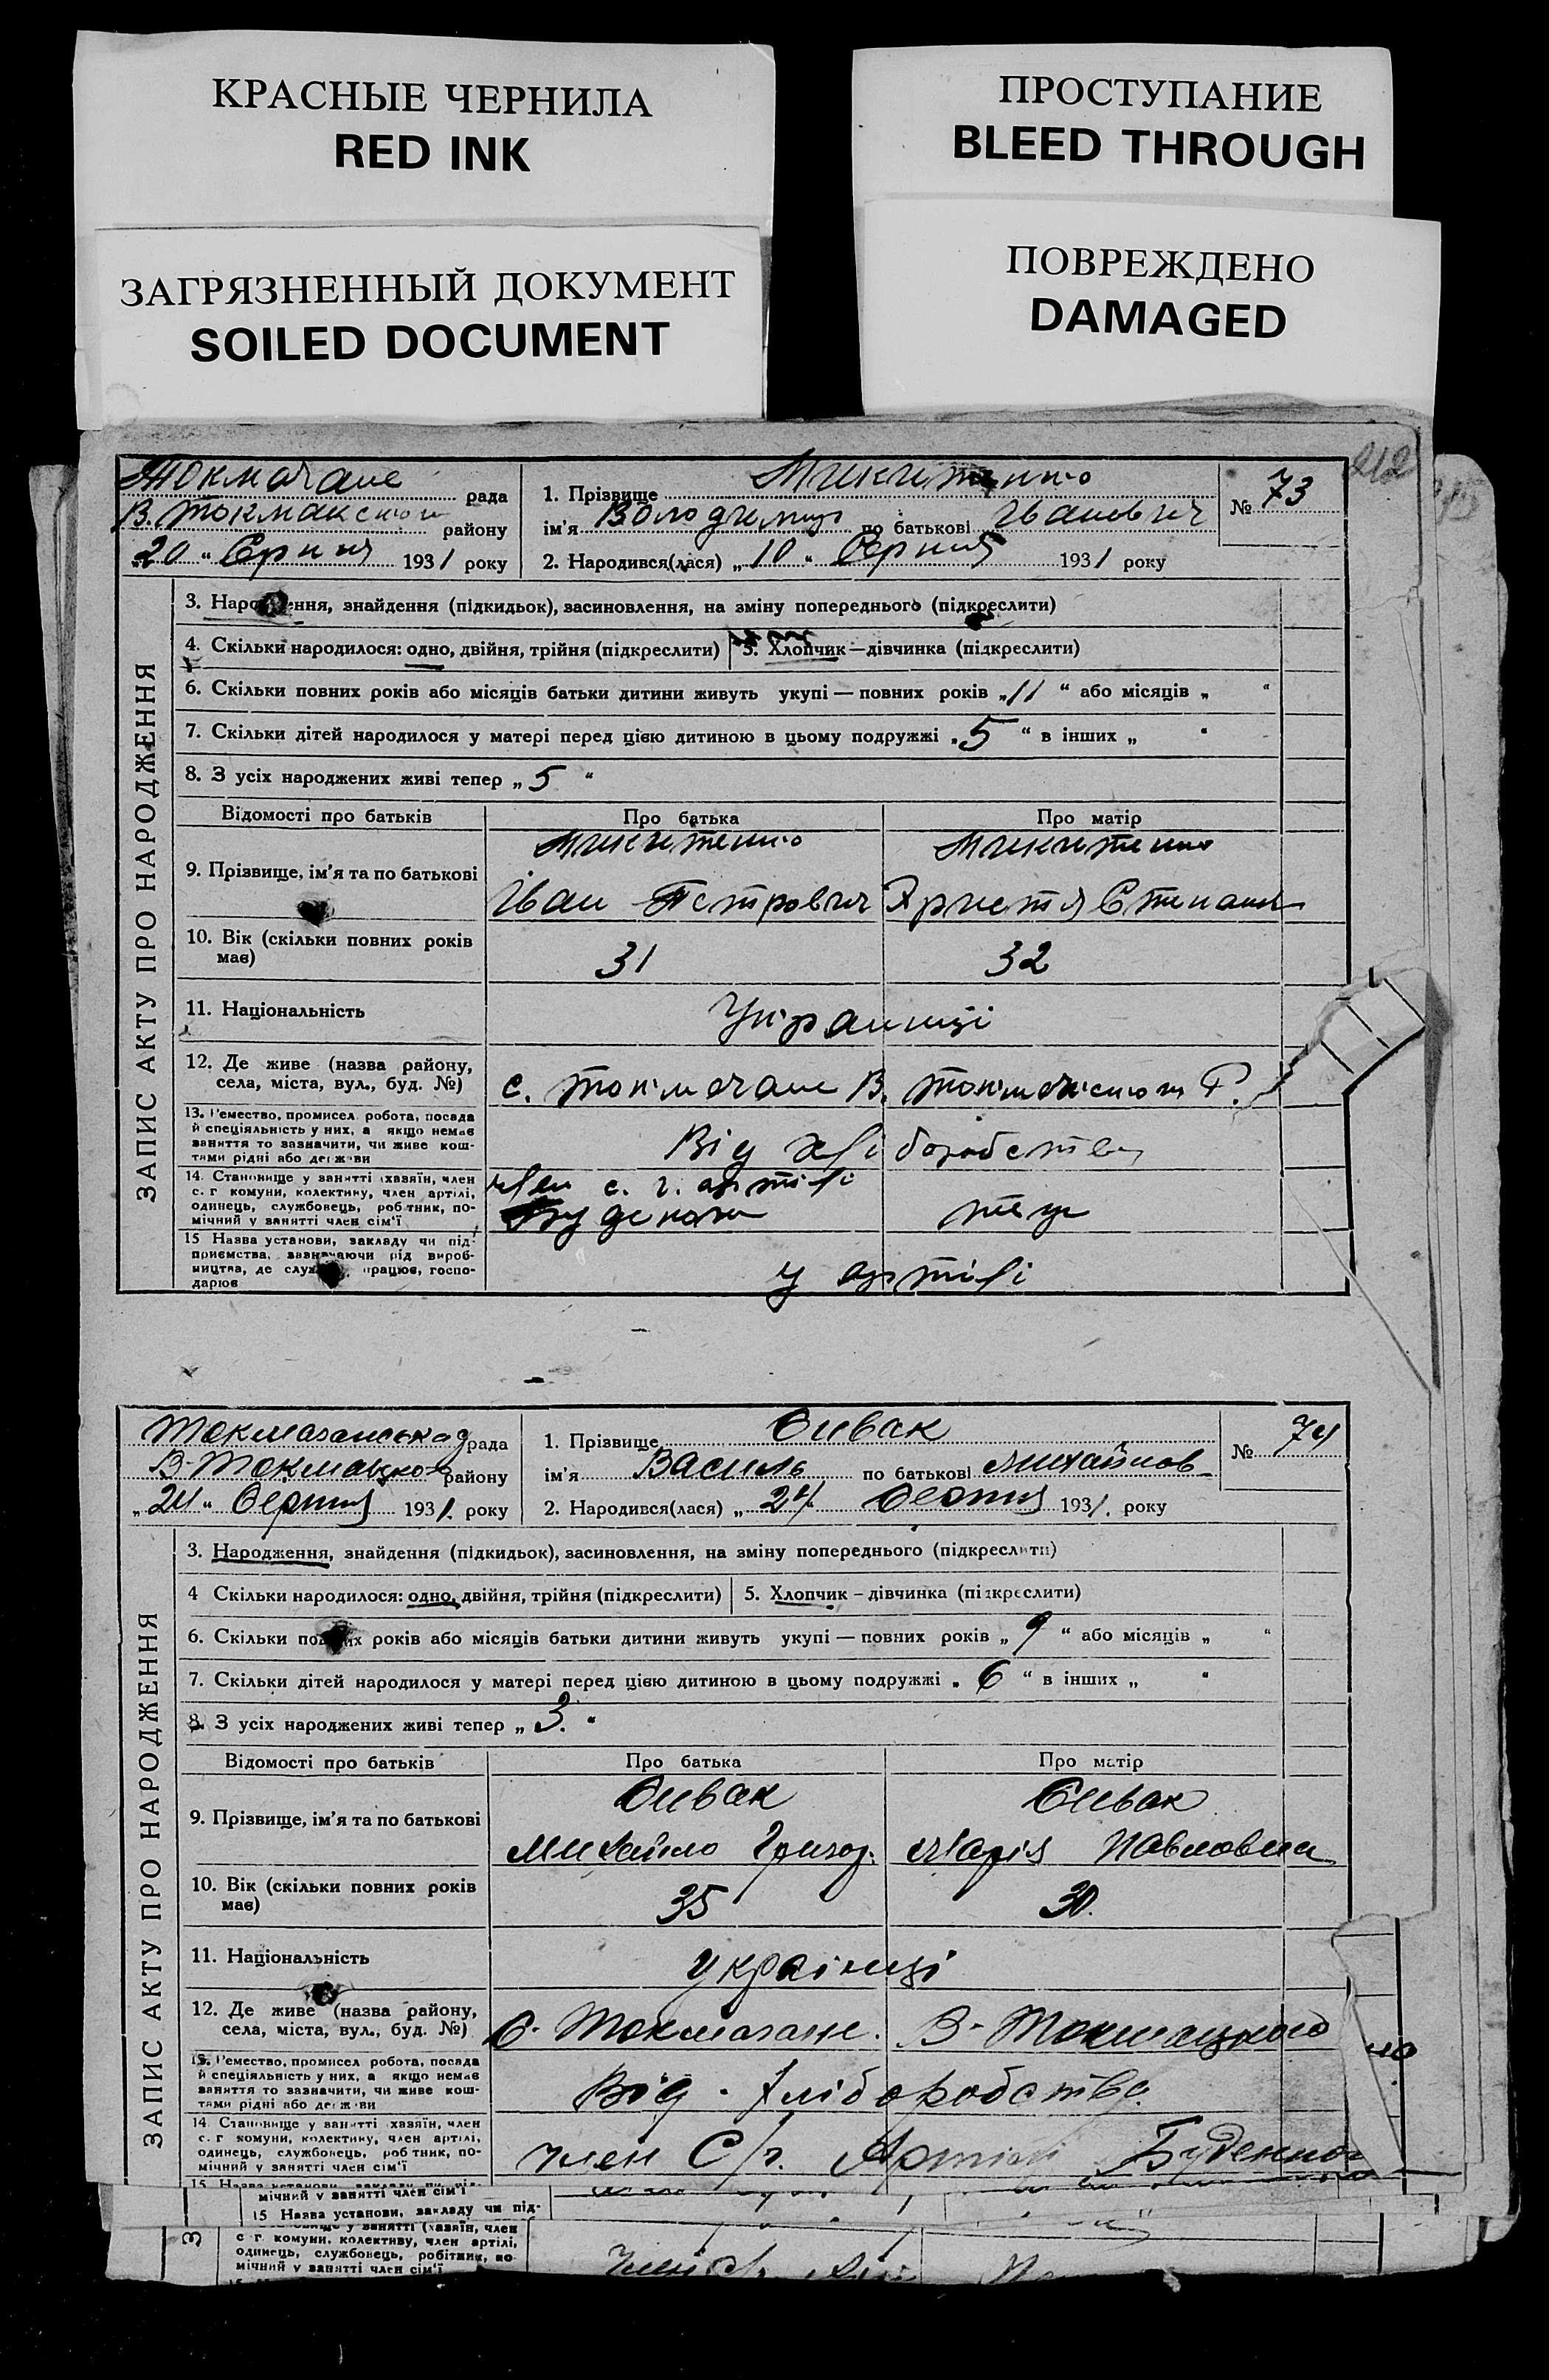 КРАСНЫЕ ЧЕРНИЛА
RED INK
ПРОСТУПАНИЕ
BLEED THROUGH
ЗАГРЯЗНЕННЫЙ ДОКУМЕНТ
SOILED DOCUMENT
ПОВРЕЖДЕНО
DAMAGED
212
Токмачане рада
В. Токмакського району
„20“ Серпня 1931 року
1. Прізвище Микитенко
ім'я Володимир по батькові Іванович
2. Народився(лася) „10“ Серпня 1931 року
№ 73
ЗАПИС АКТУ ПРО НАРОДЖЕННЯ
3. Народження, знайдення (підкидьок), засиновлення, на зміну попереднього (підкреслити)
4. Скільки народилося: одно, двійня, трійня (підкреслити) 5. Хлопчик—дівчинка (підкреслити)
6. Скільки повних років або місяців батьки дитини живуть укупі — повних років „11“ або місяців „ “
7. Скільки дітей народилося у матері перед цією дитиною в цьому подружжі „5“ в інших „ “
8. З усіх народжених живі тепер „5“
Відомості про батьків Про батька Про матір
9. Прізвище, ім'я та по батькові
Микитенко Микитенко
Іван Петрович Христя Степан
10. Вік (скільки повних років має)
31 32
11. Національність
Українці
12. Де живе (назва району, села, міста, вул., буд. №)
с. Токмачане В. Токмакського Р.
13. Ремество, промисел, робота, посада й спеціяльність у них, а якщо немає заняття то зазначити, чи живе коштами рідні або держави
Від хліборобства
14. Становище у занятті (хазяїн, член с. г комуни, колективу, член артілі, одинець, службовець, робітник, помічний у занятті член сім'ї
член с. г. артілі
Буденого теж
15 Назва установи, закладу чи підприємства, зазначаючи рід виробництва, де служить, працює, господарює
у артілі
Токмачанська рада
В-Токмацького району
„24“ Серпня 1931. року
1. Прізвище Сивак
ім'я Василь по батькові Михайлов
2. Народився(лася) „24. Серпня 1931. року
№ 74
ЗАПИС АКТУ ПРО НАРОДЖЕННЯ
3. Народження, знайдення (підкидьок), засиновлення, на зміну попереднього (підкреслити)
4 Скільки народилося: одно, двійня, трійня (підкреслити) 5. Хлопчик – дівчинка (підкреслити)
6. Скільки повних років або місяців батьки дитини живуть укупі — повних років „9“ або місяців „ “
7. Скільки дітей народилося у матері перед цією дитиною в цьому подружжі „6“ в інших „ “
8. З усіх народжених живі тепер „3.“
Відомості про батьків Про батька Про матір
9. Прізвище, ім'я та по батькові
Сивак Сивак
Михайло Григор. Марія Павловна
10. Вік (скільки повних років має)
35 30.
11. Національність
українці
12. Де живе (назва району, села, міста, вул., буд. №)
С. Токмачане. В-Токмацького
13. Ремество, промисел робота, посада й спеціяльність у них, а якщо немає заняття то зазначити, чи живе коштами рідні або держави
Від. хліборобства.
14 Становище у занятті хазяїн, член с. г комуни, колективу, член артілі, одинець, службовець, робітник, помічний у занятті член сім'ї
член С/г. Артілі Буденного
15. Назва установи, закладу чи під-
мічний у занятті член сім'ї
15 Назва установи, закладу чи під-
у занятті (хазяїн, член
с г комуни, колективу, член артілі,
одинець, службовець, робітник, по
мічний у занятті член сім'ї